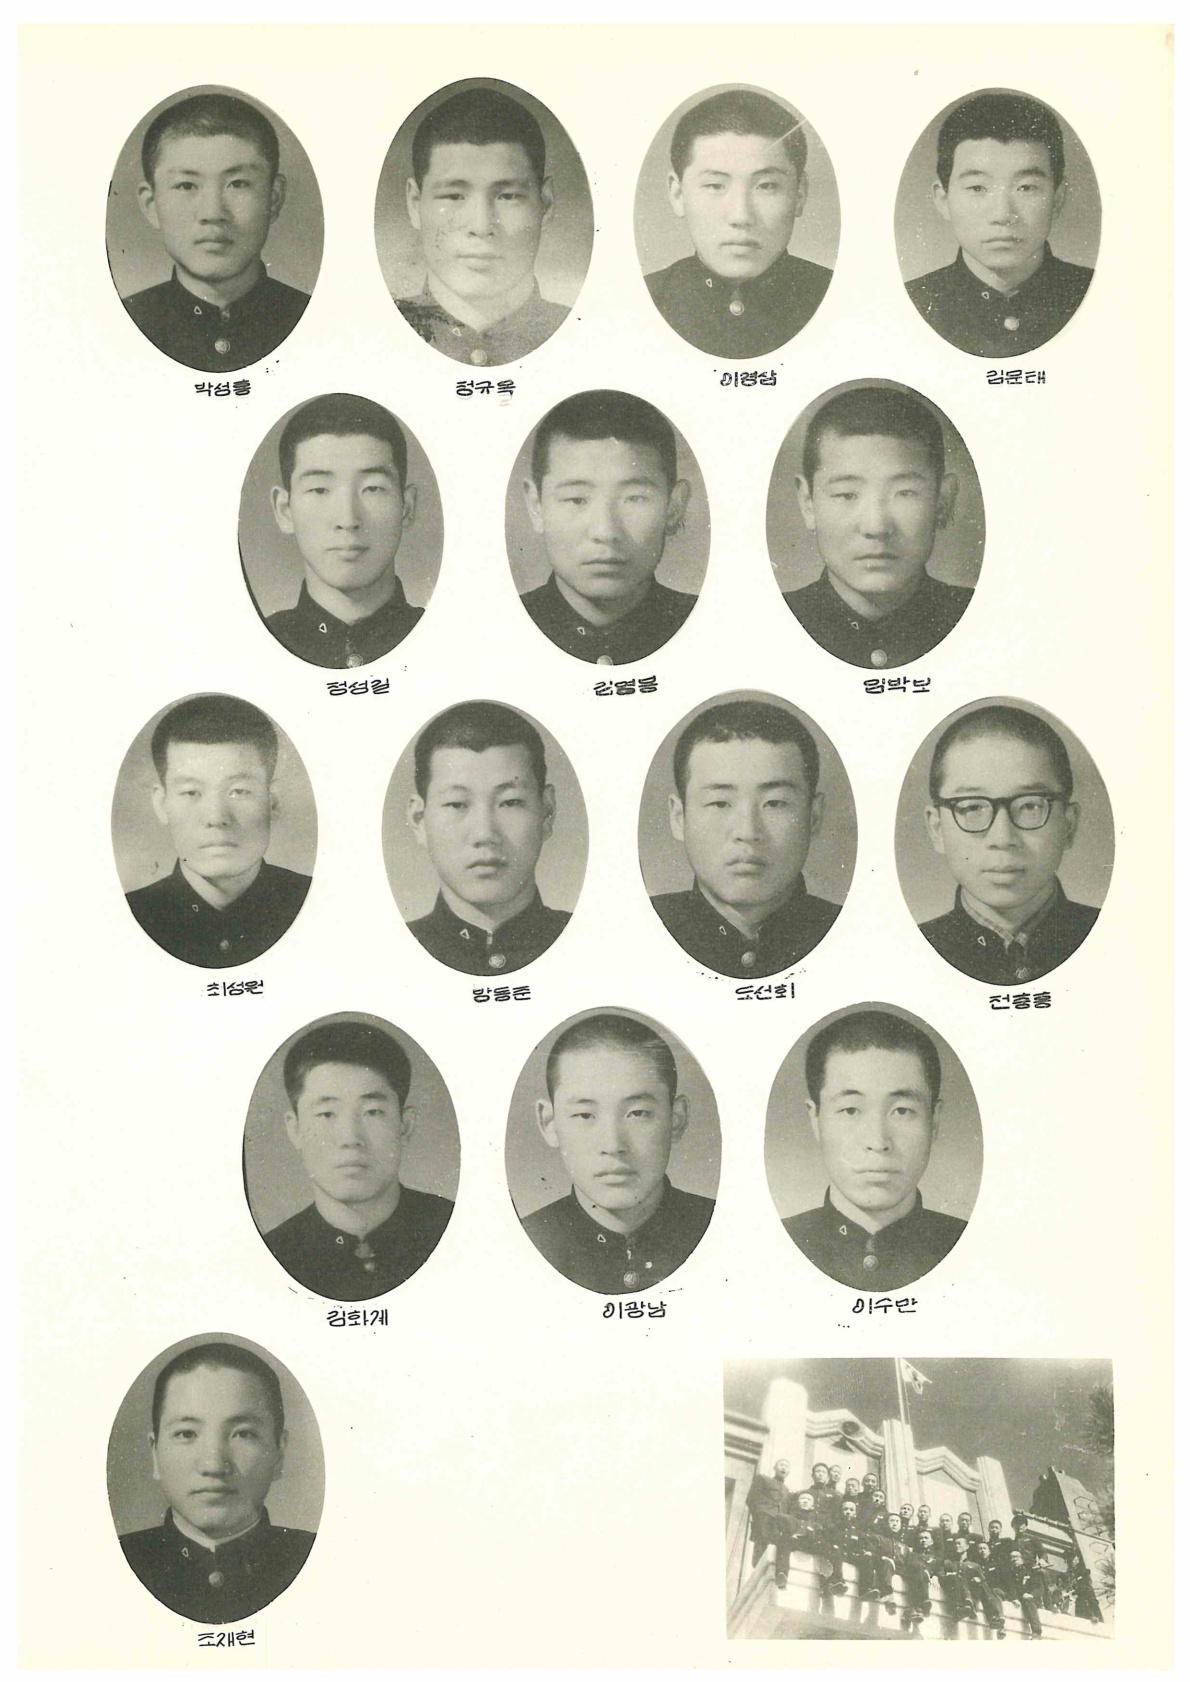 박성흥 정규옥 이경삼 김문태
정성길 김영봉 임박보
최성원 방동준 도선회 전흥흥
김화계 이광남 이수만
조재현